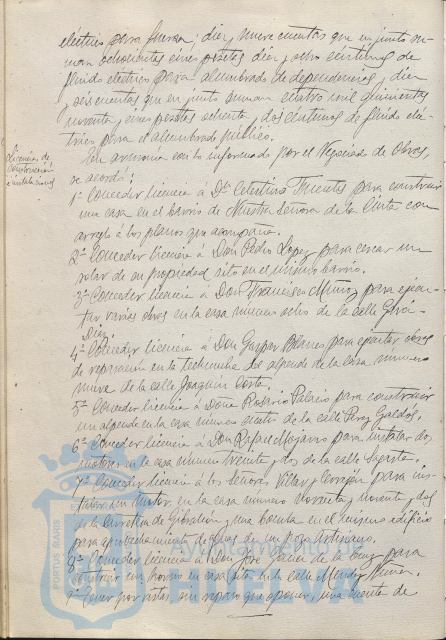 electrico para fuerza; diez y nueve cuentas que en junto su-
man ochocientas cinco pesetas diez y ocho céntimos de
fluido electrico para alumbrado de dependencias, y diez
y seis cuentas que en junto suman cuatro mil quinientas
noventa y cinco pesetas ochenta y dos centimos de fluido eléc-
trico para el alumbrado público.
Licencias de
construcción
é instalaciones
En armonia con lo informado por el Negociado de Obras,
se acordó:
1º Conceder licencia á Dº Celestino para construir
una casa en el barrio de Nuestra Señora de la Cinta con
arreglo á los planos que acompaña.
2º Conceder licencia á Don Pedro Lopez para cercar un
solar de su propiedad sito en el mismo barrio.
3º Conceder licencia á Don Francisco Muñoz para ejecu-
tar varias obras en la casa numero ocho de la calle
Diaz.
4º Conceder licencia á Don Gaspar Blanes para ejecutar obras
de reparación en la techumbre del alpende de la casa numero
nueve de la calle Joaquin Costa.
5º Conceder licencia á Doña Rosario Palacio para construir
un alpende en la casa numero cuatro de la calle Perez Galdós.
6º Conceder licencia á Don Rafael Mojarro para instalar dos
motores en la casa numero treinta y dos de la calle Sagasta.
7º Conceder licencia á los Señores Vilar y para ins-
talar un motor en la casa numero noventa y noventa y dos
de la carretera de Gibraleón, y una bomba en el mismo edificio
para aprovechamiento de aguas de un pozo artesiano.
8º Conceder licencia á Don José Garcia de la Cruz para
construir un horno en casa sita en la calle Mendez Nuñez.
9º Tener por vistas sin reparo que oponer, una cuenta de
PORTUS MARIS
Ayuntamiento de
HUELVA